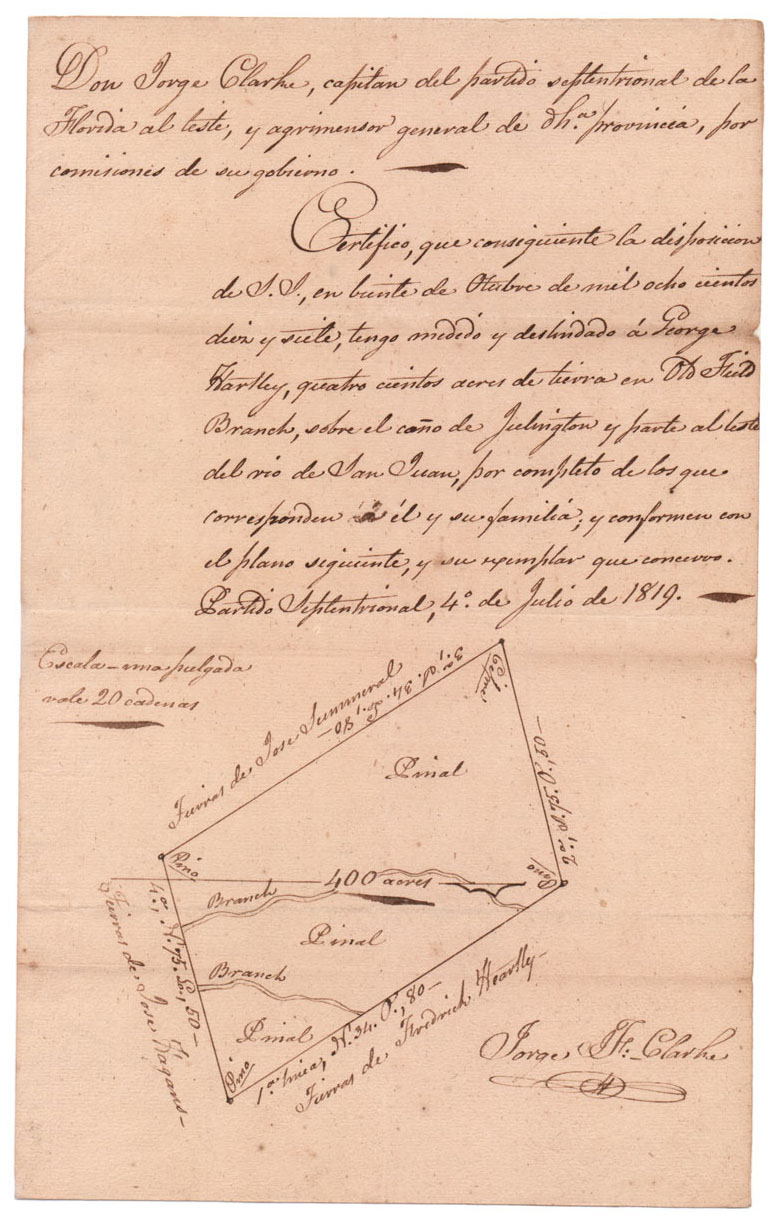 Don Jorge Clarke, capitan del partido septentrional de la
Florida al leste, y agrimensor general de dh.ª provincia, por
comisiones de su gobierno.
Certifico, que consiguiente la disposicion
de S. S., en binte de Otubre de mil ocho cientos
diez y siete, tengo medido y deslindado á George
Hartley, quatro cientos acres de tierra en Old Field
Branch, sobre el caño de Julington y parte al leste
del rio de San Juan, por completo de los que
corresponden á él y su familia; y conformen con
el plano siguiente, y su exemplar que concervo.
Partido Septentrional, 4º. de Julio de 1819.
Escala - una pulgada
vale 20 cadenas
Tierras de Jose Summeral
3ª, S. 34. L., 80-
2ª, S. 75. O., 50-
Pinal
Pino
Pino
400 acres
Branch
Pinal
Branch
Pinal
Pino
4ª, N. 75. L., 50-
Tierras de Jose Fagans-
1ª linea, N. 34. O., 80-
Tierras de Fredrich Heartly-
Jorge J. F. Clarke